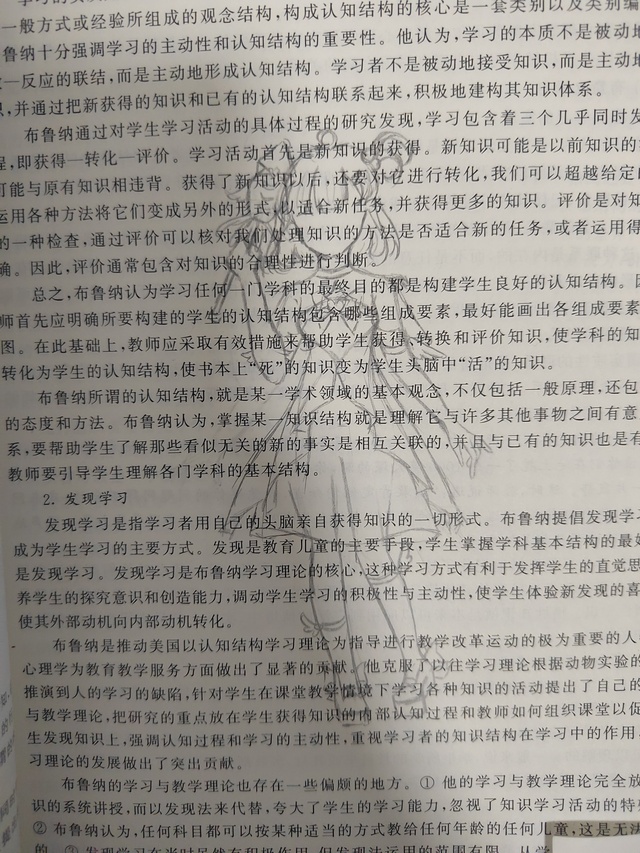 一般方式或经验所组成的观念结构，构成认知结构的核心是一套类别以及类别编
鲁纳十分强调学习的主动性和认知结构的重要性。他认为，学习的本质不是被动地
—反应的联结，而是主动地形成认知结构。学习者不是被动地接受知识，而是主动地
，并通过把新获得的知识和已有的认知结构联系起来，积极地建构其知识体系。
布鲁纳通过对学生学习活动的具体过程的研究发现，学习包含着三个几乎同时发
程，即获得—转化—评价。学习活动首先是新知识的获得。新知识可能是以前知识的
可能与原有知识相违背。获得了新知识以后，还要对它进行转化，我们可以超越给定的
运用各种方法将它们变成另外的形式，以适合新任务，并获得更多的知识。评价是对知
的一种检查，通过评价可以核对我们处理知识的方法是否适合新的任务，或者运用得
确。因此，评价通常包含对知识的合理性进行判断。
总之，布鲁纳认为学习任何一门学科的最终目的都是构建学生良好的认知结构。因
师首先应明确所要构建的学生的认知结构包含哪些组成要素，最好能画出各组成要素
图。在此基础上，教师应采取有效措施来帮助学生获得、转换和评价知识，使学科的知
转化为学生的认知结构，使书本上“死”的知识变为学生头脑中“活”的知识。
布鲁纳所谓的认知结构，就是某一学术领域的基本观念，不仅包括一般原理，还包
的态度和方法。布鲁纳认为，掌握某一知识结构就是理解它与许多其他事物之间有意
系，要帮助学生了解那些看似无关的新的事实是相互关联的，并且与已有的知识也是有
教师要引导学生理解各门学科的基本结构。
2. 发现学习
发现学习是指学习者用自己的头脑亲自获得知识的一切形式。布鲁纳提倡发现学习
成为学生学习的主要方式。发现是教育儿童的主要手段，学生掌握学科基本结构的最好
是发现学习。发现学习是布鲁纳学习理论的核心，这种学习方式有利于发挥学生的直觉思
养学生的探究意识和创造能力，调动学生学习的积极性与主动性，使学生体验新发现的喜
使其外部动机向内部动机转化。
布鲁纳是推动美国以认知结构学习理论为指导进行教学改革运动的极为重要的人
心理学为教育教学服务方面做出了显著的贡献。他克服了以往学习理论根据动物实验的
推演到人的学习的缺陷，针对学生在课堂教学情境下学习各种知识的活动提出了自己的
与教学理论，把研究的重点放在学生获得知识的内部认知过程和教师如何组织课堂以促
生发现知识上，强调认知过程和学习的主动性，重视学习者的知识结构在学习中的作用，
习理论的发展做出了突出贡献。
布鲁纳的学习与教学理论也存在一些偏颇的地方。① 他的学习与教学理论完全放
识的系统讲授，而以发现法来代替，夸大了学生的学习能力，忽视了知识学习活动的特殊
② 布鲁纳认为，任何科目都可以按某种适当的方式教给任何年龄的任何儿童，这是无法
的。③ 发现学习在当时虽然有积极作用，但发现法运用的范围有限。从学